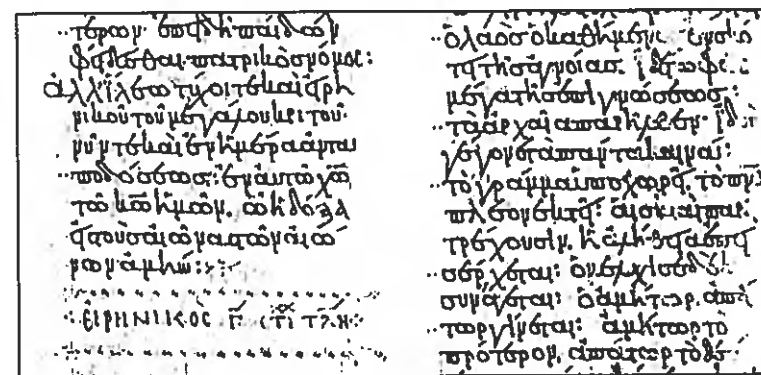 τέρων· ἐπειδὴ παίδων
φείδεσθαι πατρικὸς νόμος:
ἀλλ' ἵλεω τύχοιτε καὶ εἰρη
νικοῦ τοῦ μεγάλου κριτοῦ·
νῦν τε καὶ ἐν ἡμέρα ἀντα
ποδόσεως: ἐν αὐτῶ χ̅ω̅
τῶ κ̅ω̅ ἡμῶν, ὧ ἡ δόξα
εἰς τοὺς αἰῶνας τῶν αἰώ
νων ἀμήν:
ΕΙΡΗΝΙΚΟΣ Γ̅
ὁ λαὸς ὁ καθήμενος ἐν σκό
τει τῆς ἀγνοίας. ἰδέτω φῶς
μέγα τῆς ἐπιγνώσεως:
τὰ ἀρχαῖα παρῆλθεν· ἰδοὺ
γέγονε τὰ πάντα καινά:
τὸ γράμμα ὑποχωρεῖ. τὸ πν̅α̅
πλεονεκτεῖ: αἱ σκιαὶ παρα
τρέχουσιν. ἡ ἀλήθεια ἐπει
σέρχεται: ὁ μελχισεδὲκ
συνάγεται: ὁ ἀμήτωρ, ἀπά
τωρ γίνεται: ἀμήτωρ τὸ
πρότερον, ἀπάτωρ τὸ δεύ